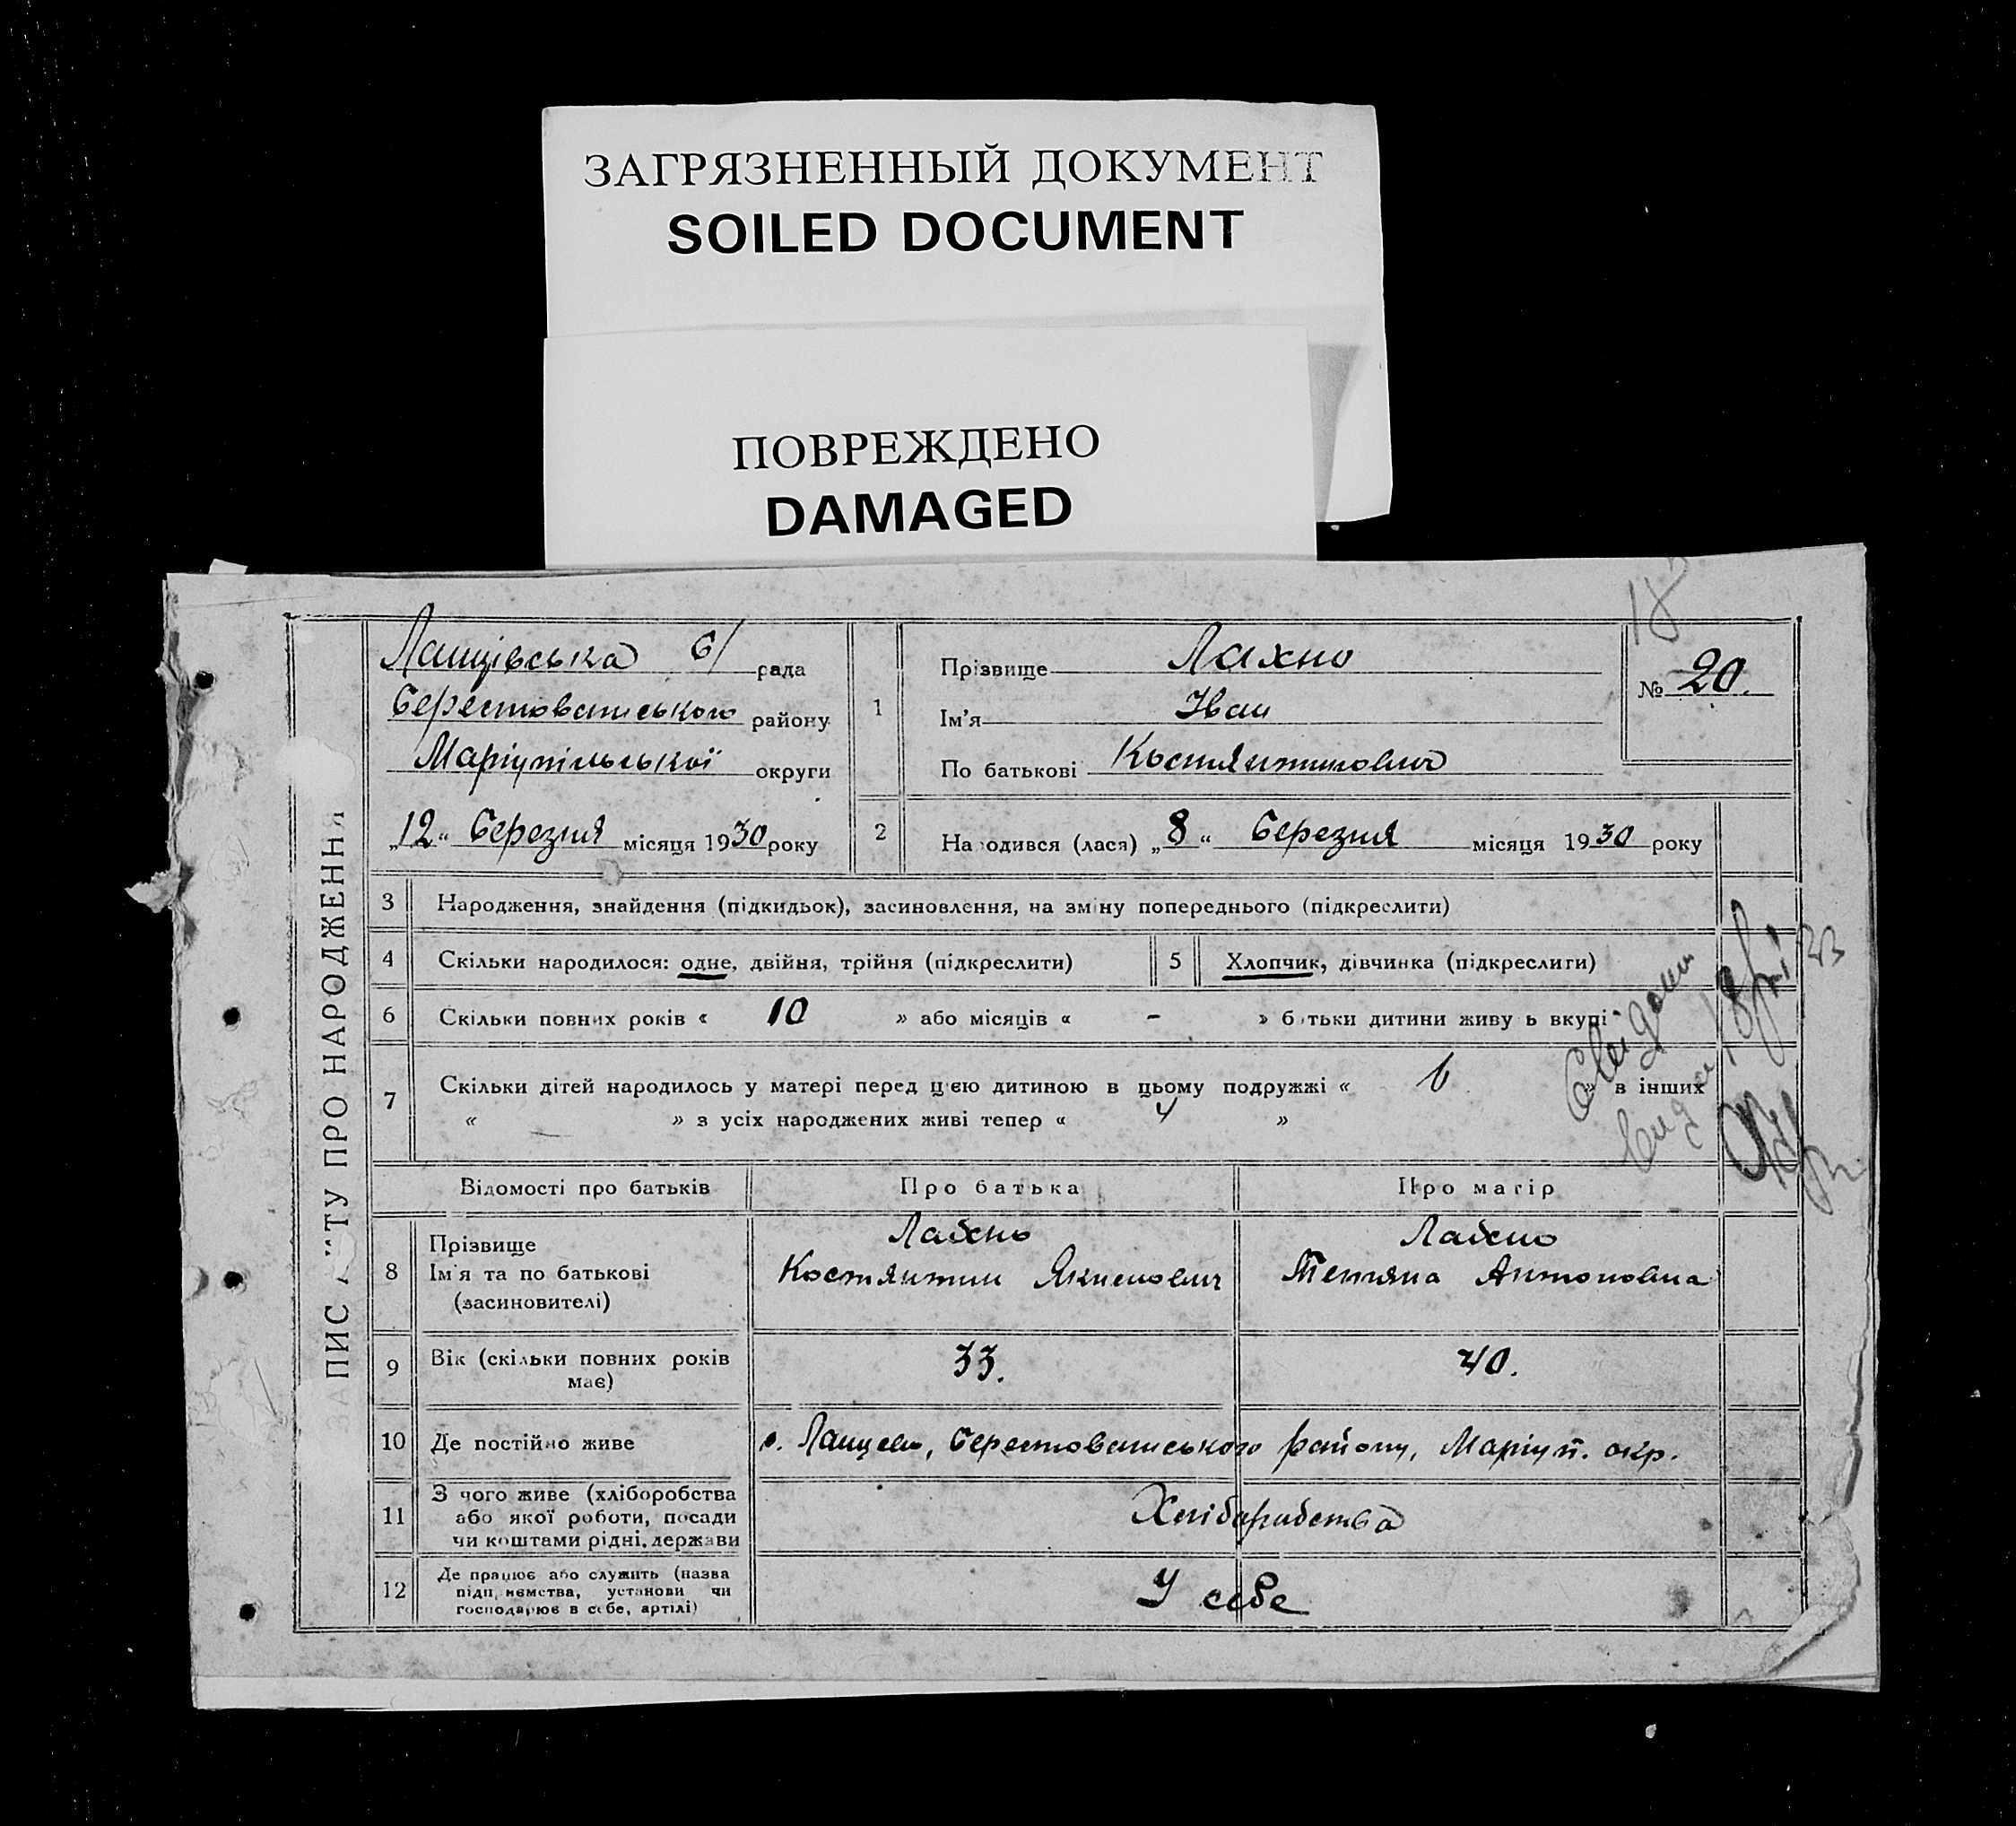 ЗАГРЯЗНЕННЫЙ ДОКУМЕНТ
SOILED DOCUMENT
ПОВРЕЖДЕНО
DAMAGED
ПИС ТУ ПРО НАРОДЖЕННЯ
Лащівська с/ рада
Берестованського району
Маріупільської округи
„12“ березня місяця 1930 року
1
Прізвище Лахно
Ім'я Іван
По батькові Костянтинович
№ 20.
2
Народився (лася) „8“ березня місяця 1930 року
3 Народження, знайдення (підкидьок), засиновлення, на зміну попереднього (підкреслити)
4 Скільки народилося: одне, двійня, трійня (підкреслити)
5 Хлопчик, дівчинка (підкреслити)
6 Скільки повних років « 10 » або місяців « - » батьки дитини живуть вкупі
7 Скільки дітей народилось у матері перед цією дитиною в цьому подружжі « 6 » в інших
« — » з усіх народжених живі тепер « 4 »
Відомості про батьків Про батька Про матір
8 Прізвище
Ім'я та по батькові
(засиновителі)
Лахно
Костянтин Якимович
Лахно
Тетяна Антоновна
9 Вік (скільки повних років
має)
33. 40.
10 Де постійно живе с. Лащеве, Берестованського району, Маріуп. окр.
11 З чого живе (хліборобства
або якої роботи, посади
чи коштами рідні, держави
Хліборобства
12 Де працює або служить (назва
підприємства, установи чи
господарює в себе, артілі)
У себе